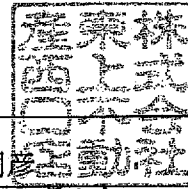 株式会社
東上不動
産西
彦